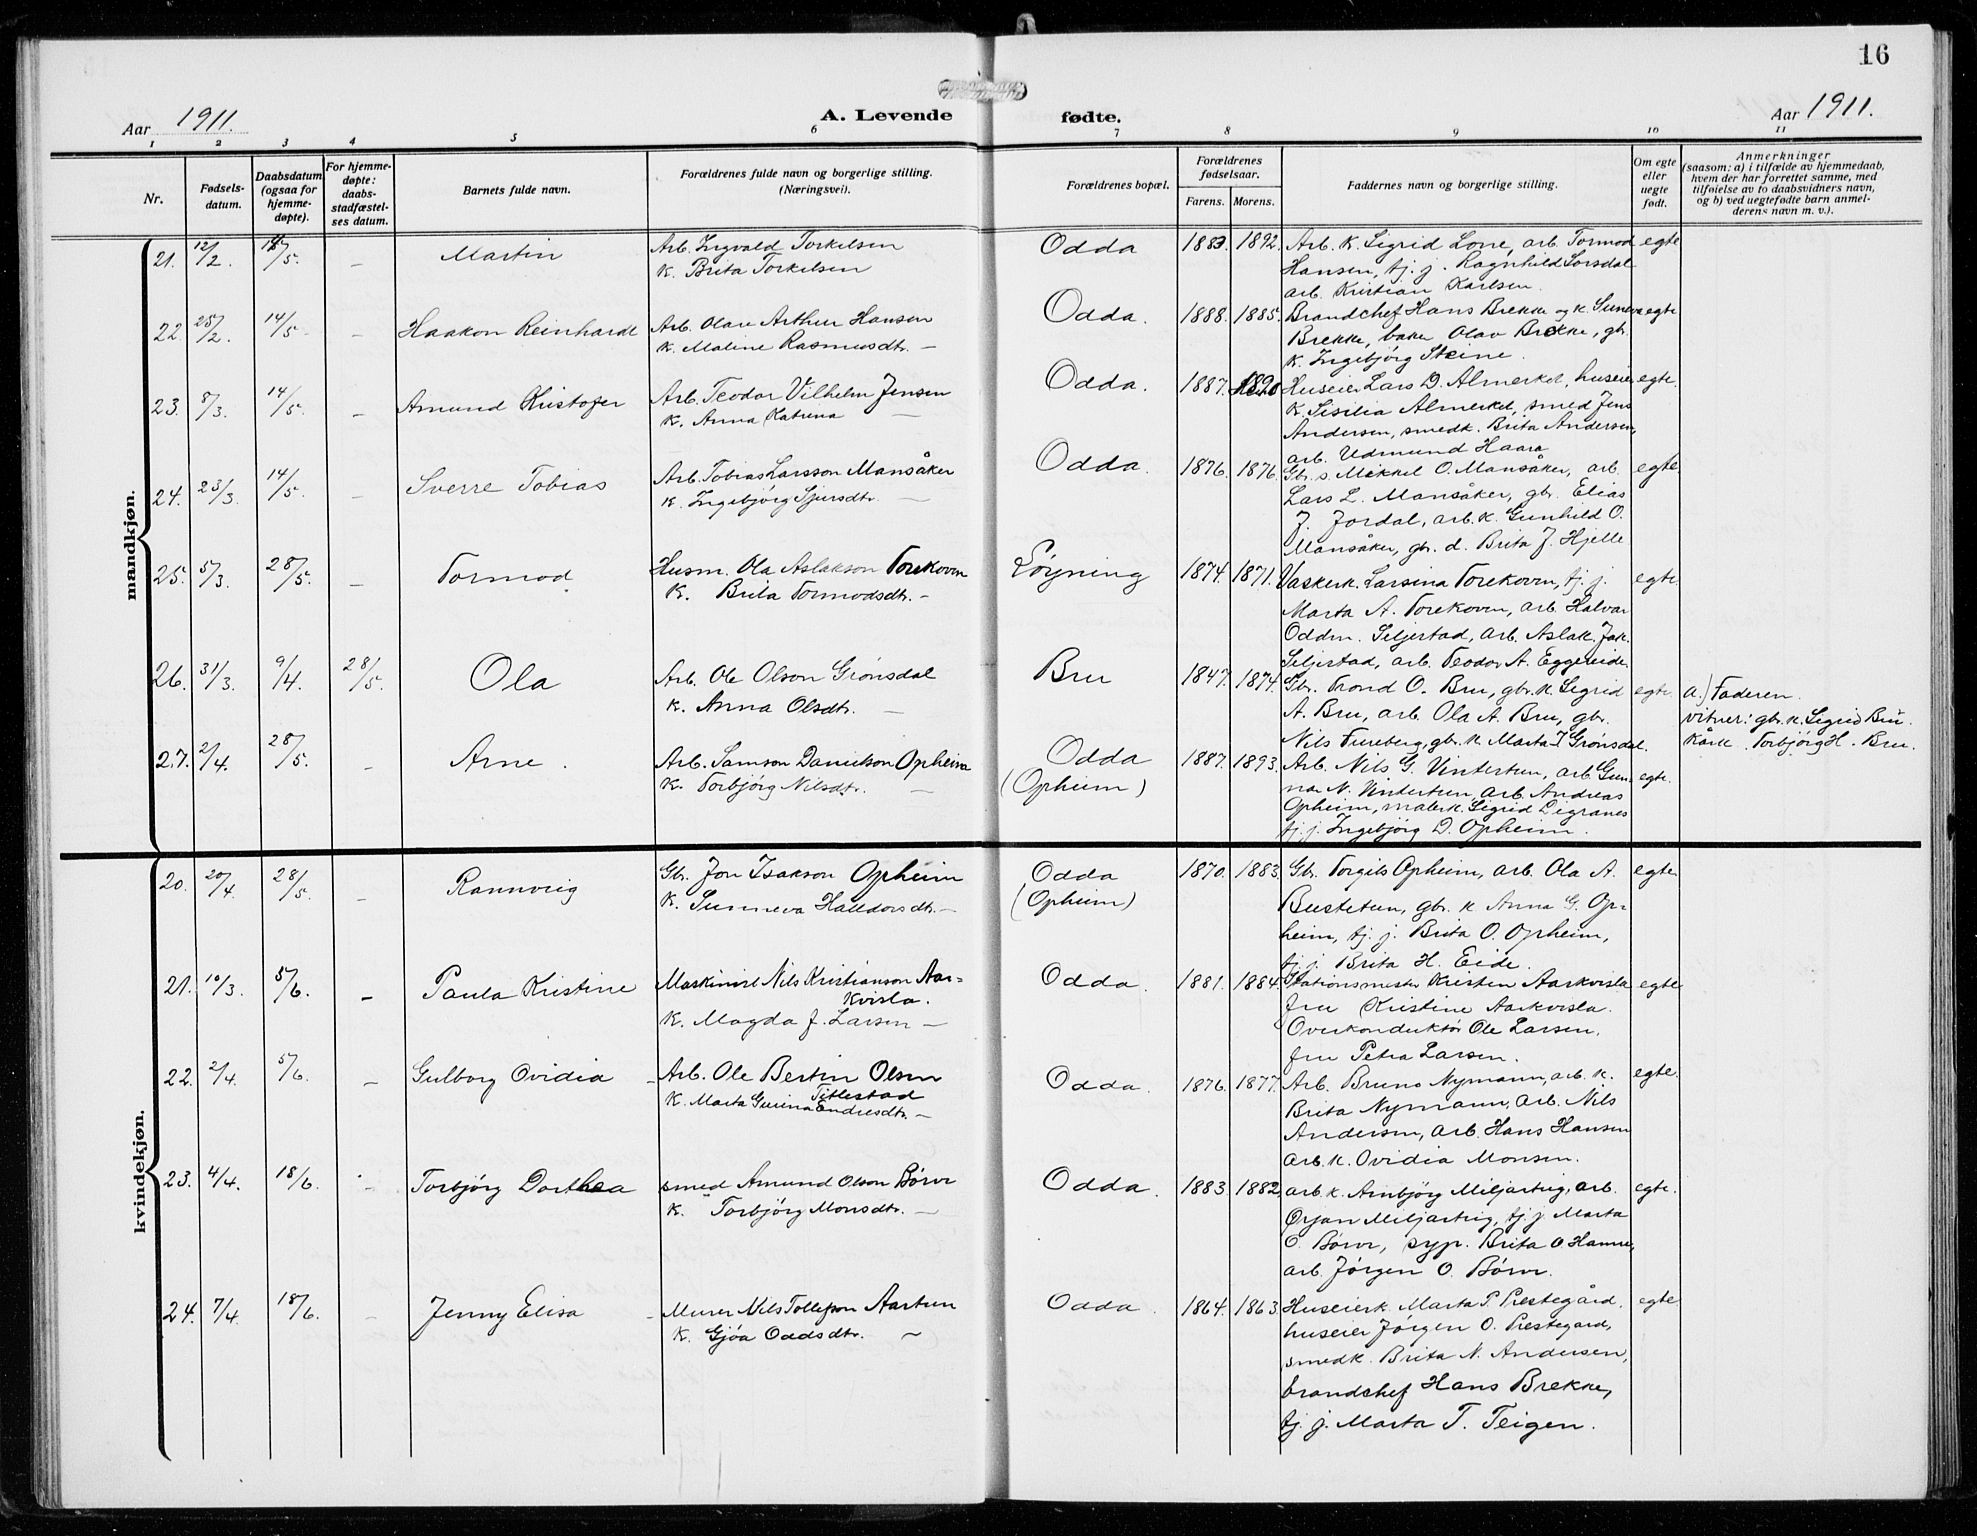 16
Aar 1911.
A. Levende fødte.
Aar 1911.
1 2 3 4 5 6 7 8 9 10 11
Nr.
Fødsels-
datum.
Daabsdatum
(ogsaa for
hjemme-
døpte).
For hjemme-
døpte:
daabs-
stadfæstel-
ses datum.
Barnets fulde navn.
Forældrenes fulde navn og borgerlige stilling.
(Næringsvei).
Forældrenes bopæl.
Forældrenes
fødselsaar.
Farens. Morens.
Faddernes navn og borgerlige stilling.
Om egte
eller
uegte
født.
Anmerkninger
(saasom: a) i tilfælde av hjemmedaab,
hvem der har forrettet samme, med
tilføielse av to daabsvidners navn,
og b) ved uegtefødte barn anmel-
derens navn m. v.).
mandkjøn.
21. 12/2. 14/5. – Martin
Arb. Ingvald Torkelsen
K. Brita Torkelsen
Odda 1883. 1892.
Arb. k. Sigrid Lone, arb. Tormod
Hansen, tj. j. Ragnhild Sorsdal
arb. Kristian Karlsen.
egte
22. 25/2. 14/5. – Haakon Reinhardt
Arb. Olav Arthur Hansen
K. Maline Rasmusdtr. –
Odda. 1888. 1885.
Brandchef Hans Brekke og k. Suneva
Brekke, baker Olav Brekke, gb.
k. Ingebjörg Steine.
egte
23. 8/3. 14/5. – Amund Kristofer
Arb. Teodor Vilhelm Jensen
K. Anna Katrina –
Odda. 1887.
Huseier Lars D. Almerket, huseier
K. Sisilia Almerket, smed Jens
Andersen, smedk. Brita Andersen,
arb. Udmund Haara
egte.
24. 23/3. 14/5. – Sverre Tobias
Arb. Tobias Larsson Mansåker
K. Ingebjörg Sjursdtr. –
Odda. 1876. 1876.
Gbr. s. Mikkel O. Mansåker, arb.
Lars L. Mansåker, gbr. Elias
J. Jordal, arb. k. Gunhild O.
Mansåker, gbr. d. Brita J. Hjelle
egte
25. 5/3. 28/5. – Tormod
Husm. Ola Aslakson Torekoven
K. Brita Tormodsdtr. –
Löyning 1874. 1871.
Vaskerk. Larsina Torekoven, tj. j.
Marta A. Torekoven, arb. Halvar
Oddm. Seljestad, arb. Aslak Jak.
Seljestad, arb. Teodor A. Eggereide
egte.
26. 31/3. 9/4. 28/5. Ola
Arb. Ole Olson Grönsdal
K. Anna Olsdtr. –
Bru 1847. 1874.
Gbr. Trond O. Bru, gbr. k. Sigrid
A. Bru, arb. Ola A. Bru, gbr.
Nils Tureberg, gbr. k. Marta T. Grönsdal.
egte.
a.) Faderen.
vitner: gbr. k. Sigrid Bru.
Kårk. Torbjörg H. Bru.
27. 2/4. 28/5. – Arne.
Arb. Samson Danielson Opheim
K. Torbjörg Nilsdtr. –
Odda
(Opheim) 1887. 1893.
Arb. Nils G. Vintertun, arb. Gun-
nar N. Vintertun, arb. Andreas
Opheim, malerk. Sigrid Digranes
tj. j. Ingebjörg D. Opheim.
egte.
kvindekjøn.
20. 20/4. 28/5. – Rannveig
Gbr. Jon Isakson Opheim
K. Sunneva Halldorsdtr. –
Odda
(Opheim) 1870. 1883.
Gbr. Torgils Opheim, arb. Ola A.
Bustetun, gbr. k. Anna G. Op-
heim, tj. j. Brita O. Opheim,
tj. j. Brita H. Eide.
egte
21. 10/3. 5/6. – Paula Kristine
Maskinist Nils Kristianson Aar-
kvisla.
K. Magda J. Larsen –
Odda. 1881. 1884.
Stationsmester Kristen Aarkvisla
fru Kristine Aarkvisla.
Overkonduktör Ole Larsen.
fru Petra Larsen.
egte
22. 2/4. 5/6. – Gulborg Ovidia
– Arb. Ole Bertin Olsen
Titlestad
K. Marta Gurina Endresdtr. –
Odda. 1876. 1877.
Arb. Bruno Nymann, arb. k.
Brita Nymann, arb. Nils
Andersen, arb. Hans Hansen
arb. k. Ovidia Monsen.
egte.
23. 4/4. 18/6. – Torbjörg Dorthea
smed Amund Olson Börve
K. Torbjörg Monsdtr. –
Odda. 1883. 1882.
arb. k. Arnbjörg Miljarteig, arb.
Örjan Miljarteig, tj. j. Marta
O. Börve, syp. Brita O Hamre,
arb. Jörgen O. Börve.
egte.
24. 7/4. 18/6. – Jenny Elisa
– Murer Nils Tollefson Aartun
K. Gjöa Oddsdtr. –
Odda. 1864. 1863.
Huseierk. Marta P. Prestegård,
huseier Jörgen O. Prestegård,
smedk. Brita N. Andersen,
brandchef Hans Brekke,
tj. j. Marta T. Teigen.
egte.